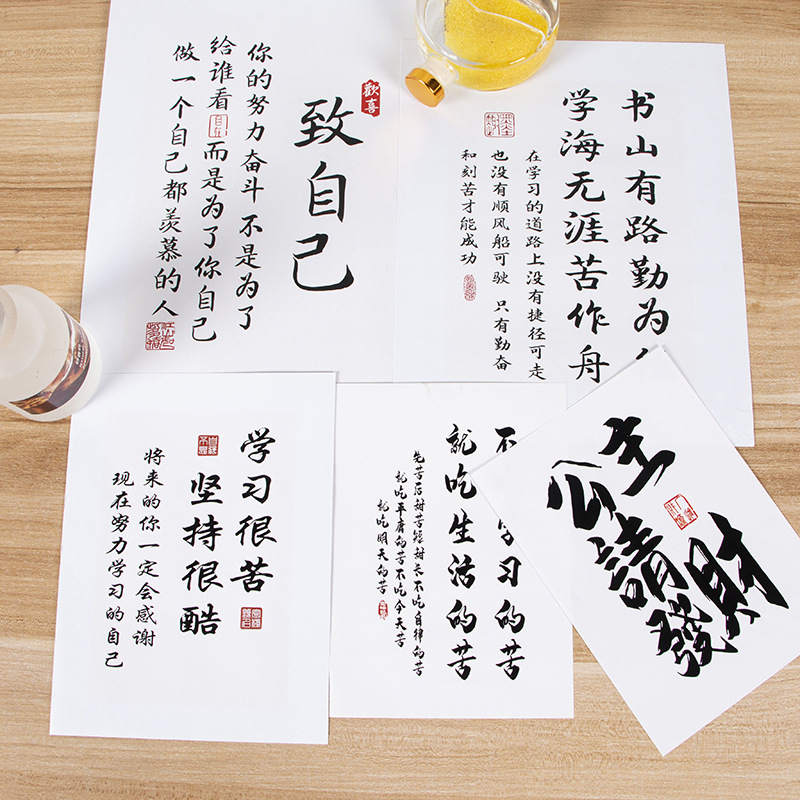 致自己
歡喜
你的努力奋斗 不是为了
给谁看 而是为了你自己
做一个自己都羡慕的人
书山有路勤为
学海无涯苦作舟
在学习的道路上没有捷径可走
也没有顺风船可驶 只有勤奋
和刻苦才能成功
学习很苦
坚持很酷
将来的你一定会感谢
现在努力学习的自己
不 学习的苦
就吃生活的苦
先苦后甜苦短甜长不吃自律的苦
就吃平庸的苦不吃今天苦
就吃明天的苦
公主
請
發財